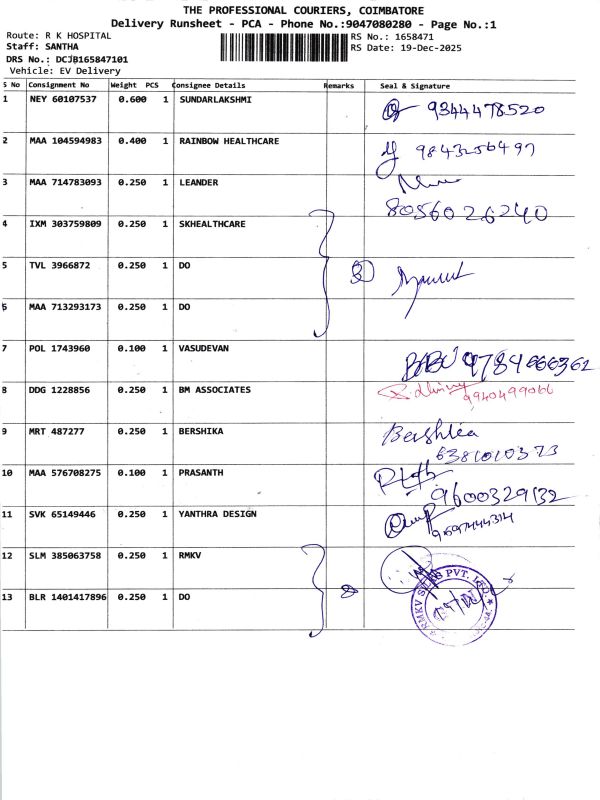 THE PROFESSIONAL COURIERS, COIMBATORE
Delivery Runsheet - PCA - Phone No.:9047080280 - Page No.:1
Route: R K HOSPITAL RS No.: 1658471
Staff: SANTHA RS Date: 19-Dec-2025
DRS No.: DCJB165847101
Vehicle: EV Delivery
S No Consignment No Weight PCS Consignee Details Remarks Seal & Signature
1 NEY 60107537 0.600 1 SUNDARLAKSHMI 9344478520
2 MAA 104594983 0.400 1 RAINBOW HEALTHCARE 9843256497
3 MAA 714783093 0.250 1 LEANDER
8056026240
4 IXM 303759809 0.250 1 SKHEALTHCARE
5 TVL 3966872 0.250 1 DO 3
6 MAA 713293173 0.250 1 DO
7 POL 1743960 0.100 1 VASUDEVAN BABU 9784666362
8 DDG 1228856 0.250 1 BM ASSOCIATES
9940499066
9 MRT 487277 0.250 1 BERSHIKA Bershlea
6381010373
10 MAA 576708275 0.100 1 PRASANTH
9600329132
11 SVK 65149446 0.250 1 YANTHRA DESIGN
12 SLM 385063758 0.250 1 RMKV
13 BLR 1401417896 0.250 1 DO
RMKV SILKS PVT. LTD.